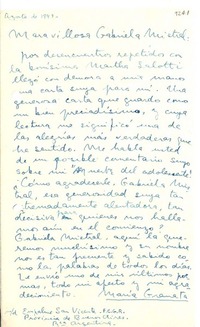 Agosto de 1947.
Maravillosa Gabriela Mistral.
por desencuentros repetidos con
la buenísima Martha Salotti
llegó con demora a mis manos
una carta suya para mí. Una
generosa carta que guardo como
un bien preciadísimo, y cuya
lectura me significa una de
las alegrías más verdaderas que
he sentido. Me habla usted
de un posible comentario suyo
sobre mi "Muerte del adolescente".
¡Cómo agradecerle, Gabriela Mis-
tral, esa generosidad suya
tremendamente alentadora, tan
decisiva para quienes nos halla-
mos aún en el comienzo?
Gabriela Mistral, aquí la que-
remos muchísimo y su nombre
nos es tan frecuente y sabido co-
mo las palabras de todos los días.
Le envío uno de mis últimos poe-
mas, todo mi afecto y mi agra-
decimiento.
María Granata
s/c Empalme San Vicente. F.C.G.R.
Provincia de Buenos Aires.
Rca. Argentina.